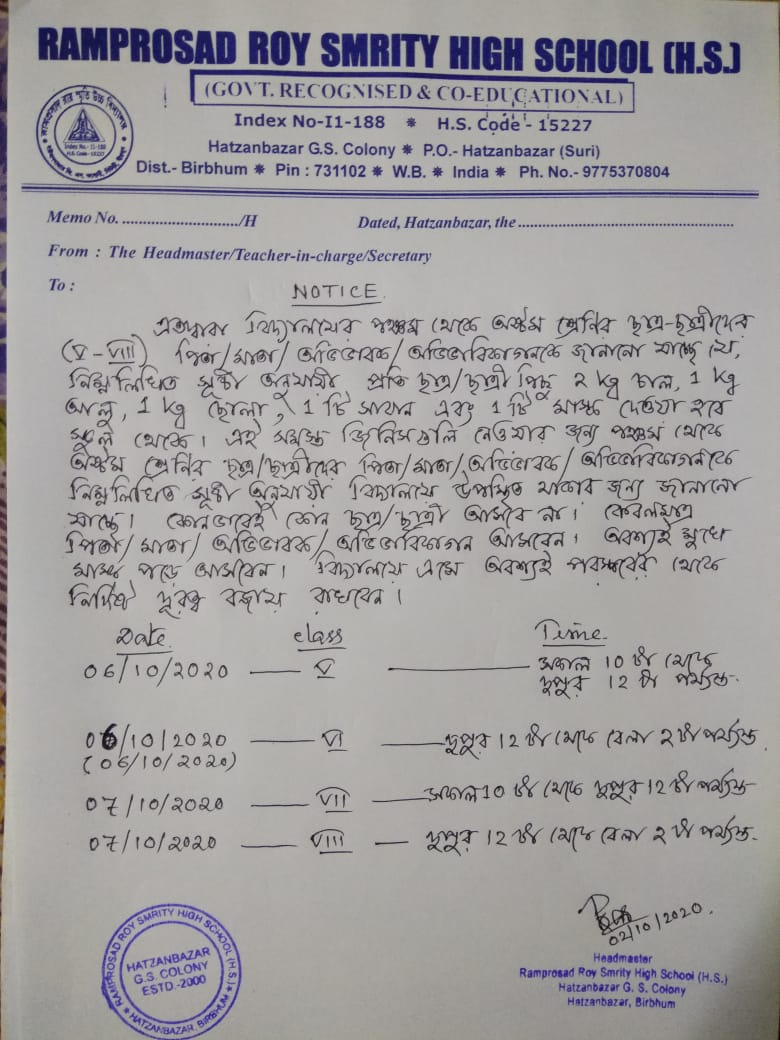 RAMPROSAD ROY SMRITY HIGH SCHOOL (H.S.)
(GOVT. RECOGNISED & CO-EDUCATIONAL)
Index No-I1-188 * H.S. Code - 15227
Hatzanbazar G.S. Colony * P.O.- Hatzanbazar (Suri)
Dist.- Birbhum * Pin : 731102 * W.B. * India * Ph. No.- 9775370804
রামপ্রসাদ রায় স্মৃতি উচ্চ বিদ্যালয়
Index No.-I1-188
H.S. Code-15227
Memo No. ............................/H
Dated, Hatzanbazar, the ......................................................
From : The Headmaster/Teacher-in-charge/Secretary
To :
NOTICE.
এতদ্বারা বিদ্যালয়ের পঞ্চম থেকে অষ্টম শ্রেনির ছাত্র-ছাত্রীদের
(V-VIII) পিতা/মাতা/অভিভাবক/অভিভাবিকাগনকে জানানো যাচ্ছে যে,
নিম্নলিখিত সূচী অনুযায়ী প্রতি ছাত্র/ছাত্রী পিছু ২ kg চাল, 1 kg
আলু, 1 kg ছোলা, 1 টি সাবান এবং 1 টি মাস্ক দেওয়া হবে
স্কুল থেকে। এই সমস্ত জিনিসগুলি নেওয়ার জন্য পঞ্চম থেকে
অষ্টম শ্রেনির ছাত্র/ছাত্রীদের পিতা/মাতা/অভিভাবক/অভিভাবিকাগনকে
নিম্নলিখিত সূচী অনুযায়ী বিদ্যালয়ে উপস্থিত থাকার জন্য জানানো
যাচ্ছে। কোনভাবেই কোন ছাত্র/ছাত্রী আসবে না। কেবলমাত্র
পিতা/মাতা/অভিভাবক/অভিভাবিকাগন আসবেন। অবশ্যই মুখে
মাস্ক পড়ে আসবেন। বিদ্যালয়ে এসে অবশ্যই পরস্পরের থেকে
নির্দিষ্ট দূরত্ব বজায় রাখবেন।
Date. class Time.
06/10/2020 — V — সকাল 10 টা থেকে
দুপুর 12 টা পর্য্যন্ত.
06/10/2020 — VI — দুপুর 12 টা থেকে বেলা ২ টা পর্য্যন্ত.
(06/10/2020)
07/10/2020 — VII — সকাল 10 টা থেকে দুপুর 12 টা পর্য্যন্ত
07/10/2020 — VIII — দুপুর 12 টা থেকে বেলা ২ টা পর্য্যন্ত.
02/10/2020.
Headmaster
Ramprosad Roy Smrity High School (H.S.)
Hatzanbazar G. S. Colony
Hatzanbazar, Birbhum
RAMPROSAD ROY SMRITY HIGH SCHOOL (H.S.)
HATZANBAZAR
G.S. COLONY
ESTD.-2000
HATZANBAZAR, BIRBHUM